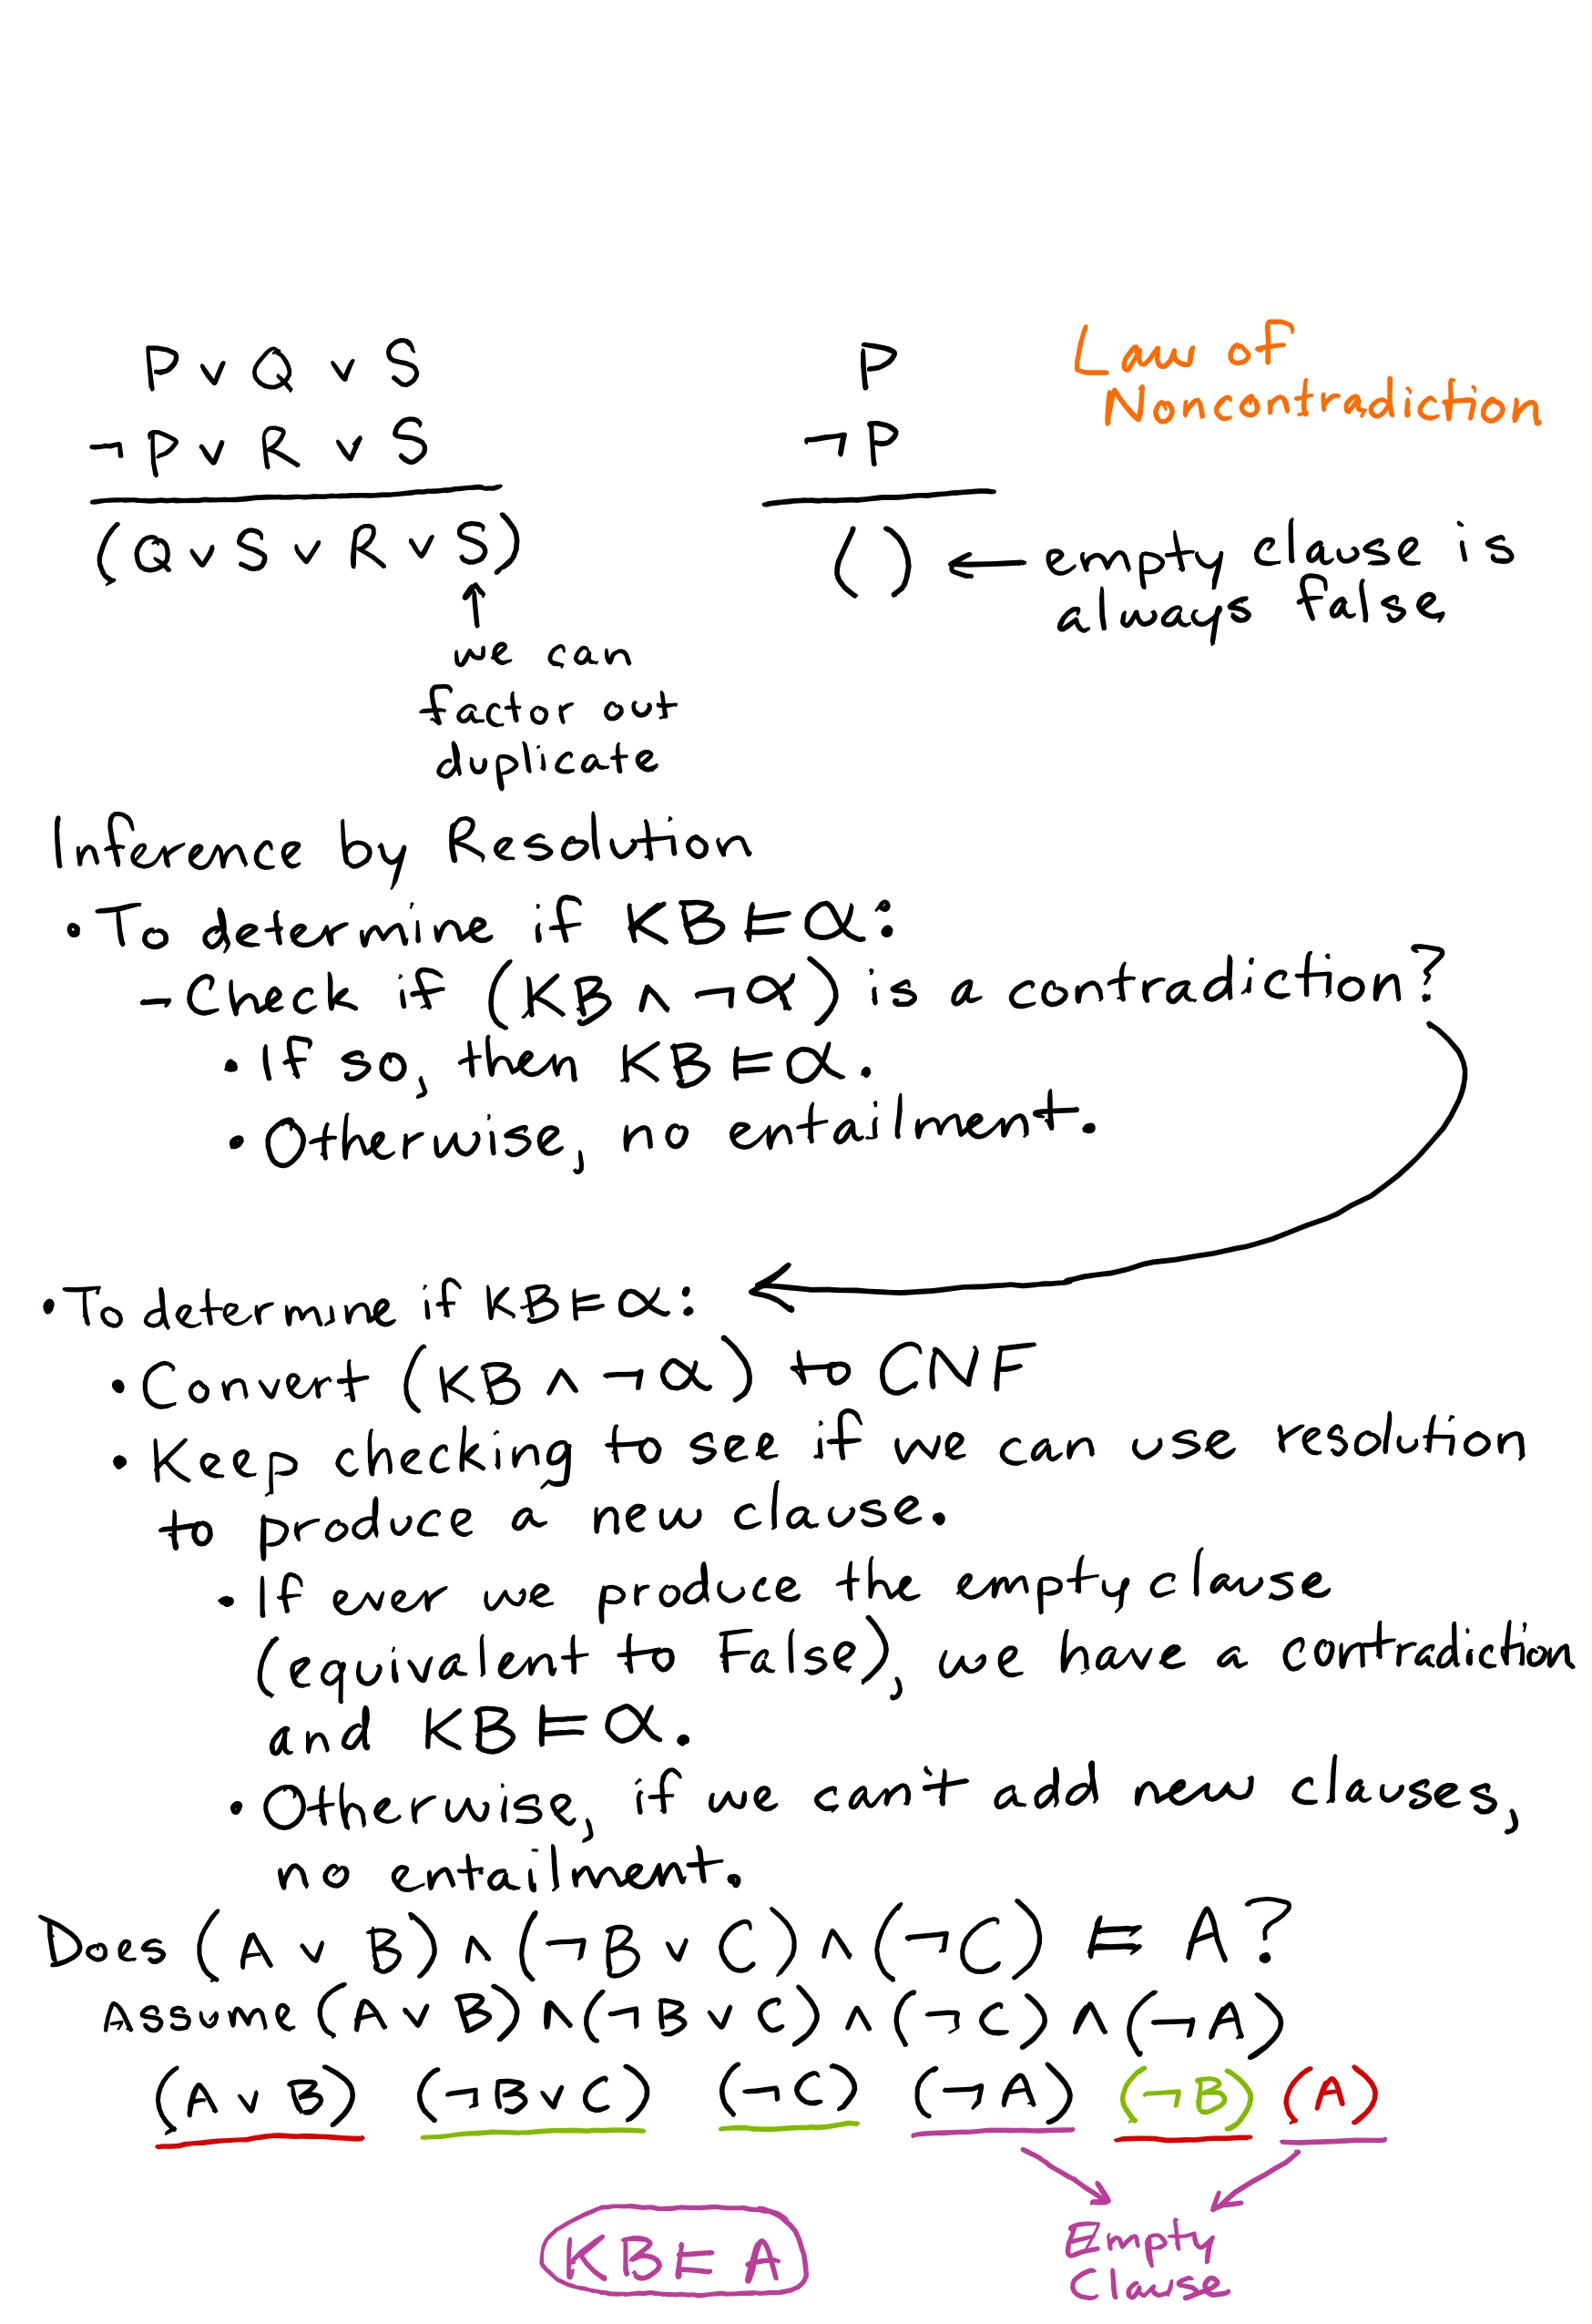 P ∨ Q ∨ S
¬P ∨ R ∨ S
(Q ∨ S ∨ R ∨ S)
↑
we can
factor out
duplicate
P
¬P
() ← empty clause is
always false
Law of
Noncontradiction
Inference by Resolution
• To determine if KB ⊨ α:
- Check if (KB ∧ ¬α) is a contradiction?
• If so, then KB ⊨ α.
• Otherwise, no entailment.
• To determine if KB ⊨ α:
• Convert (KB ∧ ¬α) to CNF
• Keep checking to see if we can use resolution
to produce a new clause.
• If ever we produce the empty clause
(equivalent to False), we have a contradiction
and KB ⊨ α.
• Otherwise, if we can't add new clauses,
no entailment.
Does (A ∨ B) ∧ (¬B ∨ C) ∧ (¬C) ⊨ A?
Assume (A ∨ B) ∧ (¬B ∨ C) ∧ (¬C) ∧ (¬A)
(A ∨ B) (¬B ∨ C) (¬C) (¬A) (¬B) (A)
Empty
Clause
KB ⊨ A